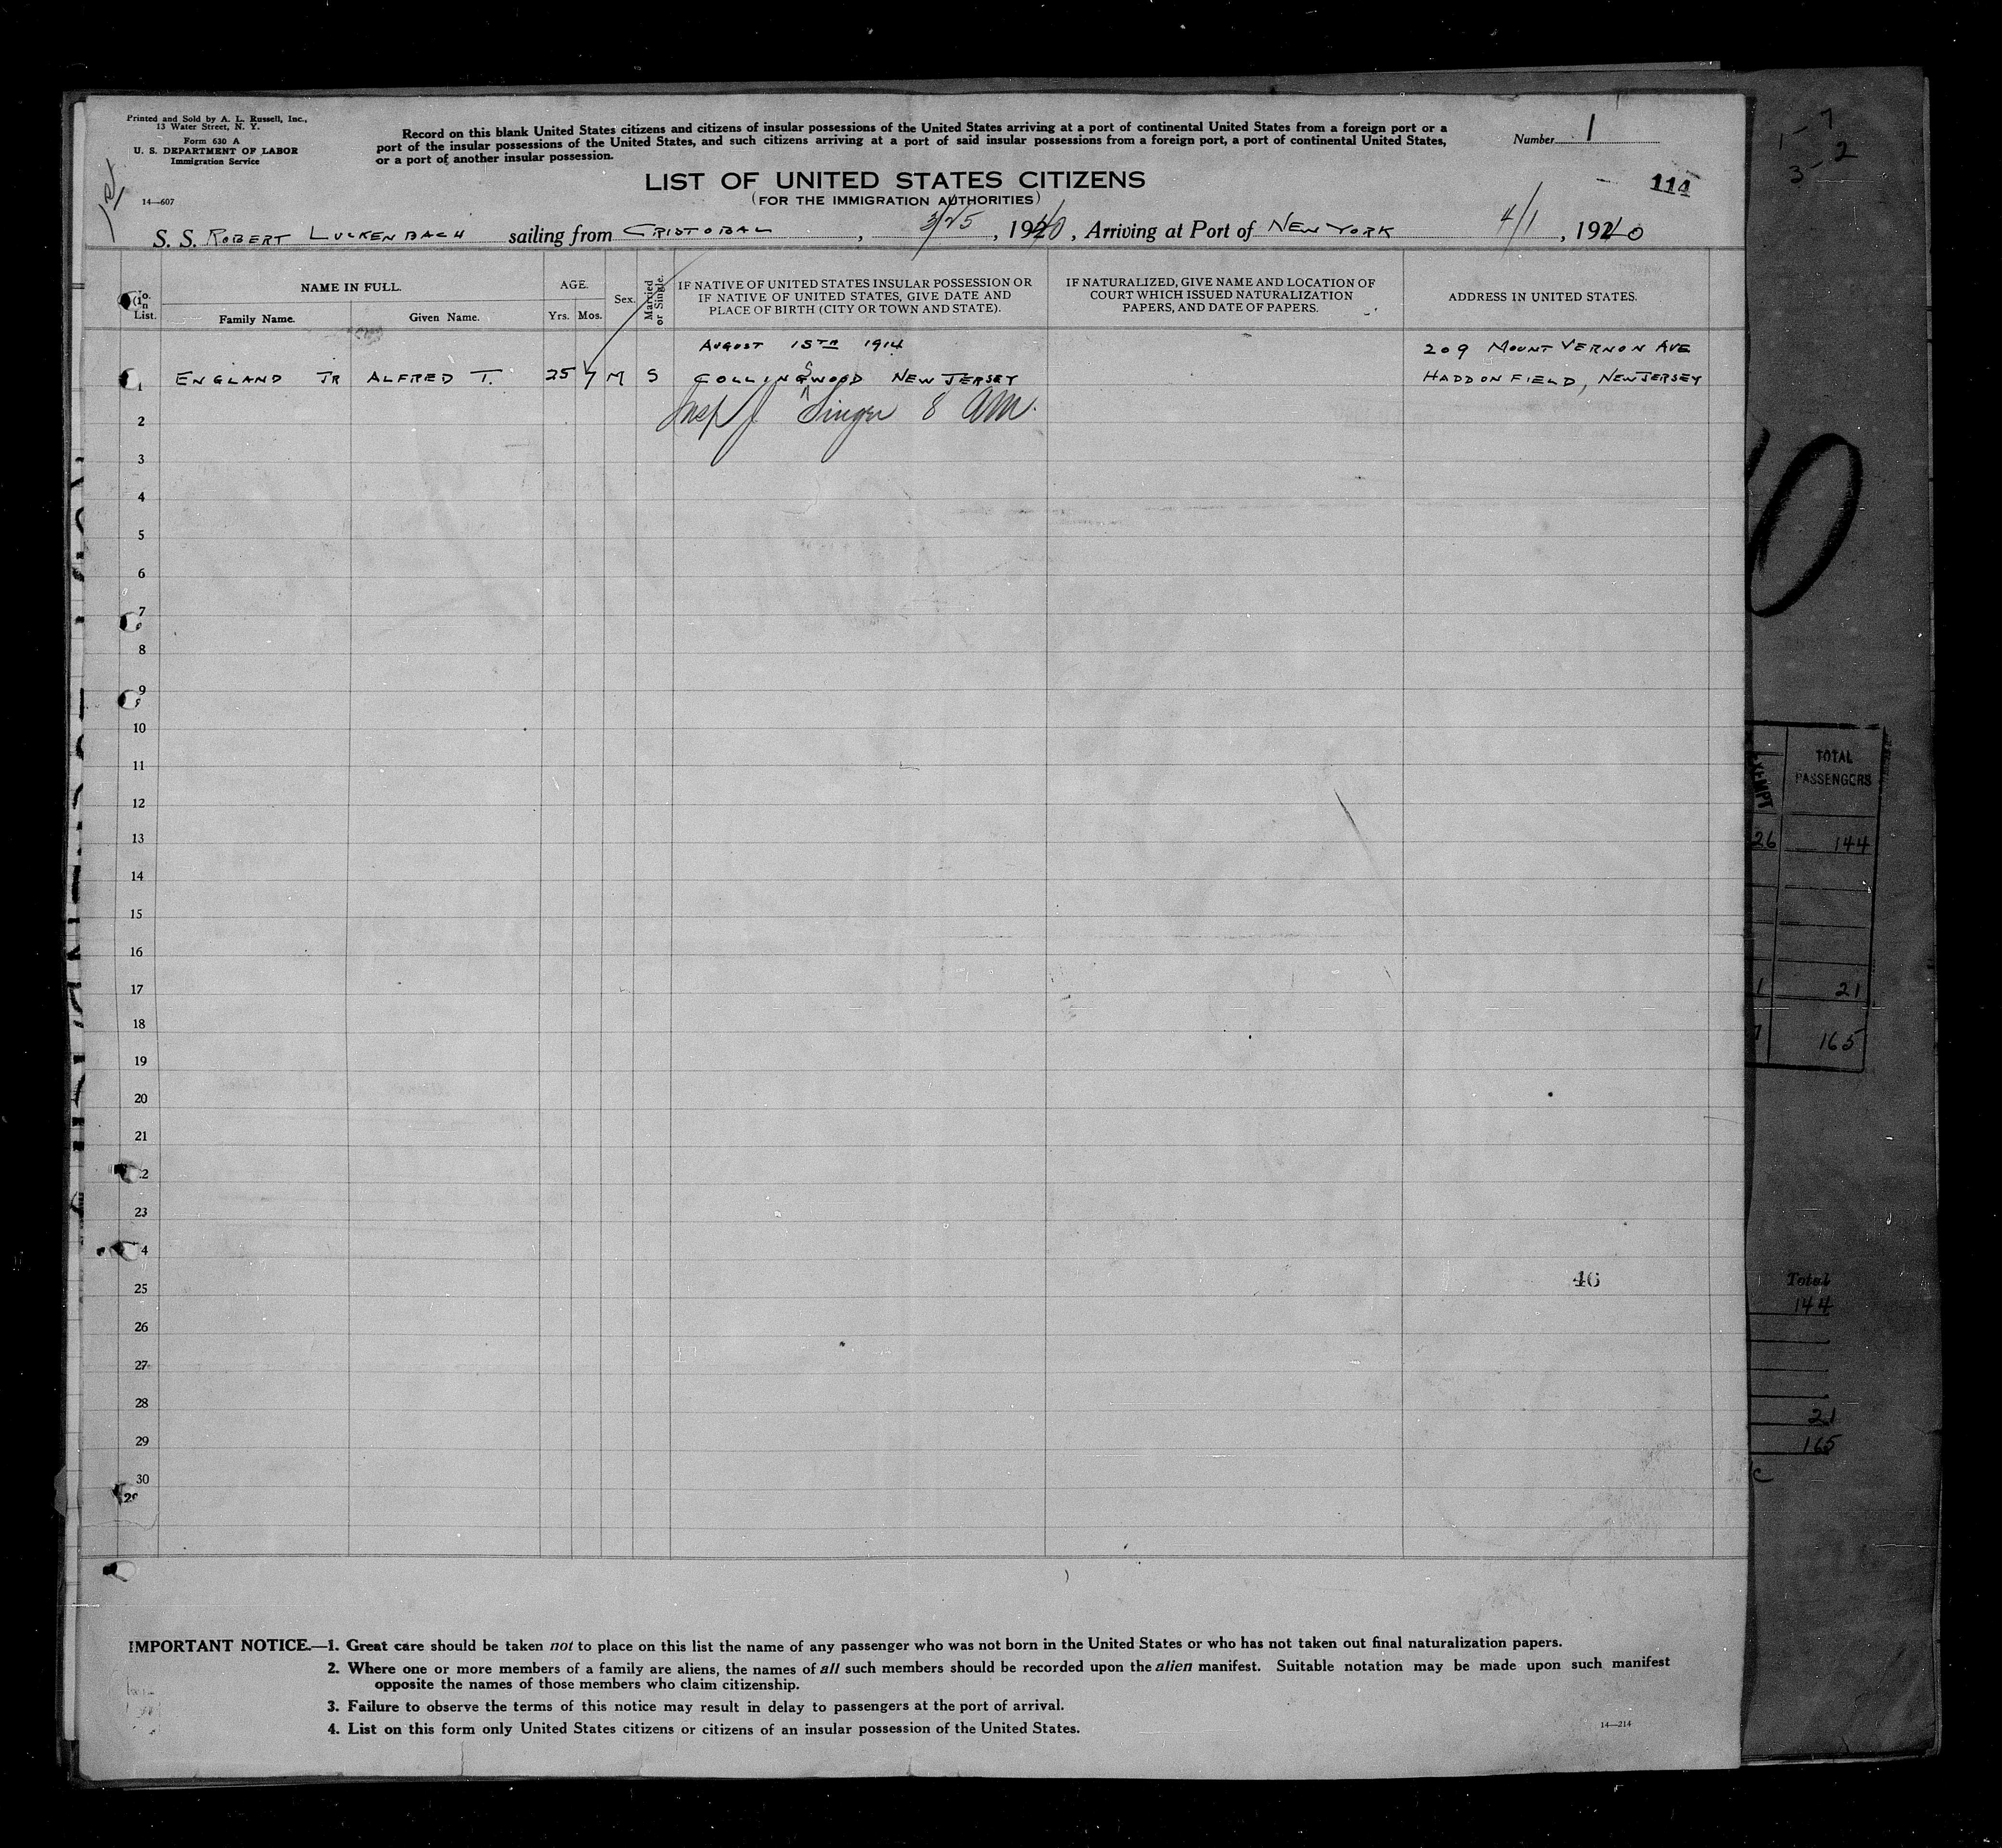 Printed and Sold by A. L. Russell, Inc.,
13 Water Street, N. Y.
Form 630 A
U. S. DEPARTMENT OF LABOR
Immigration Service
14—607
1st
Record on this blank United States citizens and citizens of insular possessions of the United States arriving at a port of continental United States from a foreign port or a
port of the insular possessions of the United States, and such citizens arriving at a port of said insular possessions from a foreign port, a port of continental United States,
or a port of another insular possession.
Number 1
114
LIST OF UNITED STATES CITIZENS
(FOR THE IMMIGRATION AUTHORITIES)
S. S. ROBERT LUCKENBACH sailing from CRISTOBAL, 3/25, 1940, Arriving at Port of NEW YORK 4/1, 1940
List.
NAME IN FULL.
Family Name.
Given Name.
AGE.
Yrs.
Mos.
Sex.
Married or Single.
IF NATIVE OF UNITED STATES INSULAR POSSESSION OR
IF NATIVE OF UNITED STATES, GIVE DATE AND
PLACE OF BIRTH (CITY OR TOWN AND STATE).
IF NATURALIZED, GIVE NAME AND LOCATION OF
COURT WHICH ISSUED NATURALIZATION
PAPERS, AND DATE OF PAPERS.
ADDRESS IN UNITED STATES.
AUGUST 15TH 1914
209 MOUNT VERNON AVE
1 ENGLAND JR ALFRED T. 25 7 M S COLLINGSWOOD NEW JERSEY HADDONFIELD, NEW JERSEY
Insp J. Singer 8 AM.
2
3
4
5
6
7
8
9
10
11
12
13
14
15
16
17
18
19
20
21
2
23
4
25
46
26
27
28
29
30
IMPORTANT NOTICE.—1. Great care should be taken not to place on this list the name of any passenger who was not born in the United States or who has not taken out final naturalization papers.
2. Where one or more members of a family are aliens, the names of all such members should be recorded upon the alien manifest. Suitable notation may be made upon such manifest
opposite the names of those members who claim citizenship.
3. Failure to observe the terms of this notice may result in delay to passengers at the port of arrival.
4. List on this form only United States citizens or citizens of an insular possession of the United States.
14—214
1-7
3-2
0
TOTAL
PASSENGERS
26 144
1 21
165
Total
144
21
165